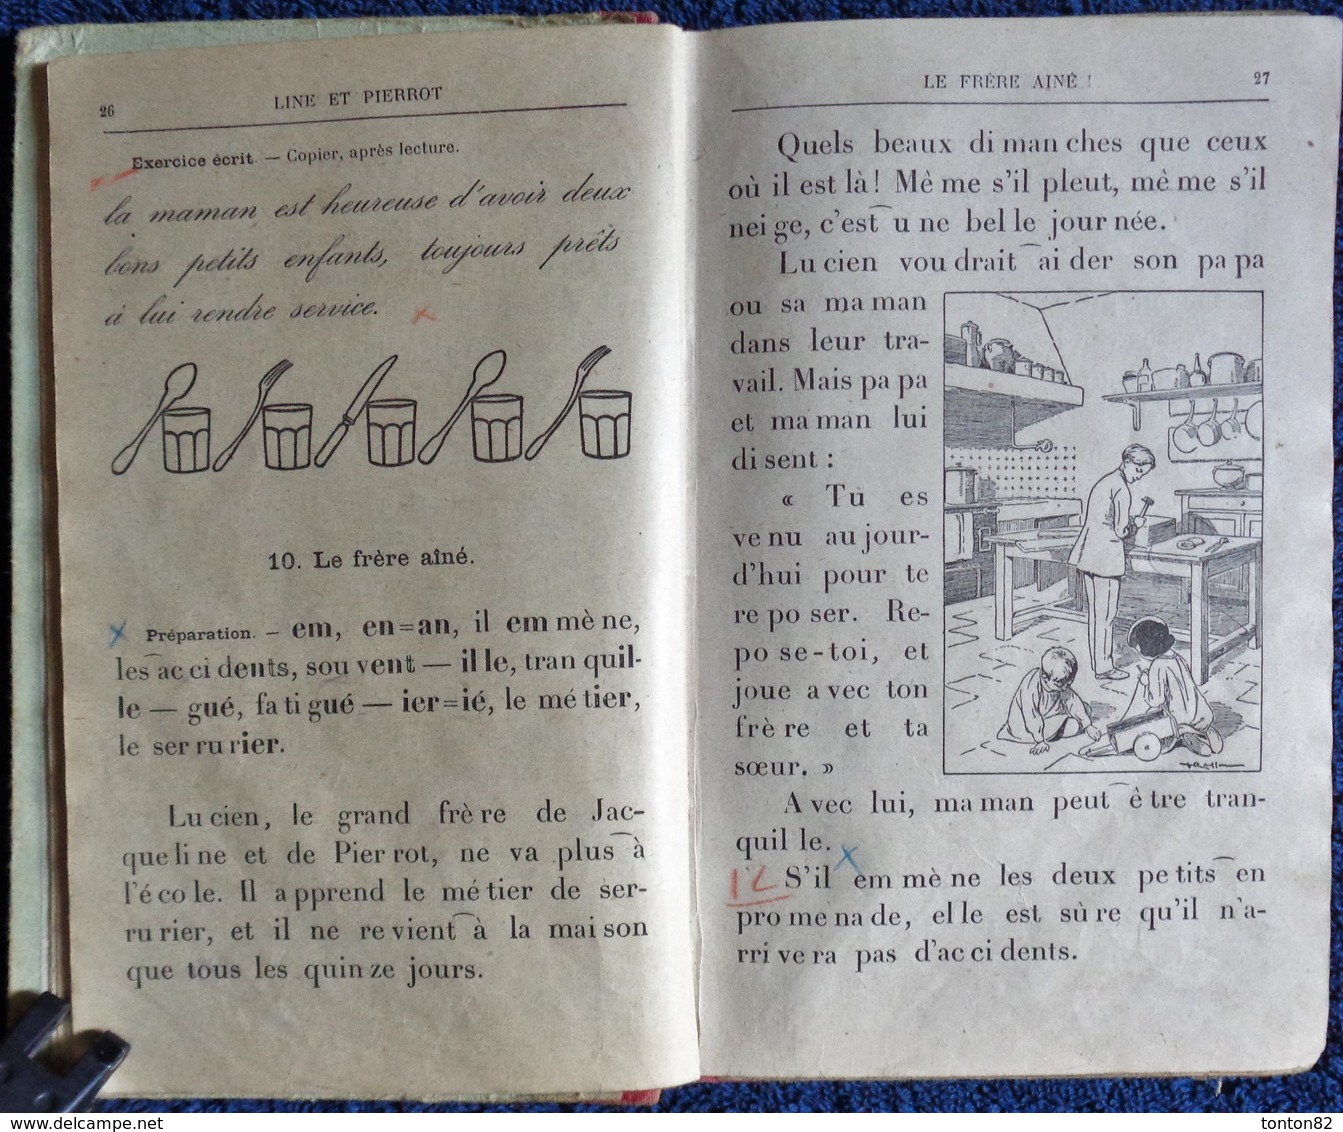 26
LINE ET PIERROT
Exercice écrit — Copier, après lecture.
la maman est heureuse d'avoir deux
bons petits enfants, toujours prêts
à lui rendre service.
10. Le frère aîné.
Préparation. — em, en=an, il em mè ne,
les ac ci dents, sou vent — il le, tran quil-
le — gué, fa ti gué — ier=ié, le mé tier,
le ser ru rier.
Lu cien, le grand frè re de Jac-
que li ne et de Pier rot, ne va plus à
l'é co le. Il a pprend le mé tier de ser-
ru rier, et il ne re vient à la mai son
que tous les quin ze jours.
LE FRÈRE AINÉ !
27
Quels beaux di man ches que ceux
où il est là! Mê me s'il pleut, mê me s'il
nei ge, c'est u ne bel le jour née.
Lu cien vou drait ai der son pa pa
ou sa ma man
dans leur tra-
vail. Mais pa pa
et ma man lui
di sent :
« Tu es
ve nu au jour-
d'hui pour te
re po ser. Re-
po se-toi, et
joue a vec ton
frè re et ta
sœur. »
A vec lui, ma man peut ê tre tran-
quil le.
12 S'il em mè ne les deux pe tits en
pro me na de, el le est sû re qu'il n'a-
rri ve ra pas d'ac ci dents.
tonton82